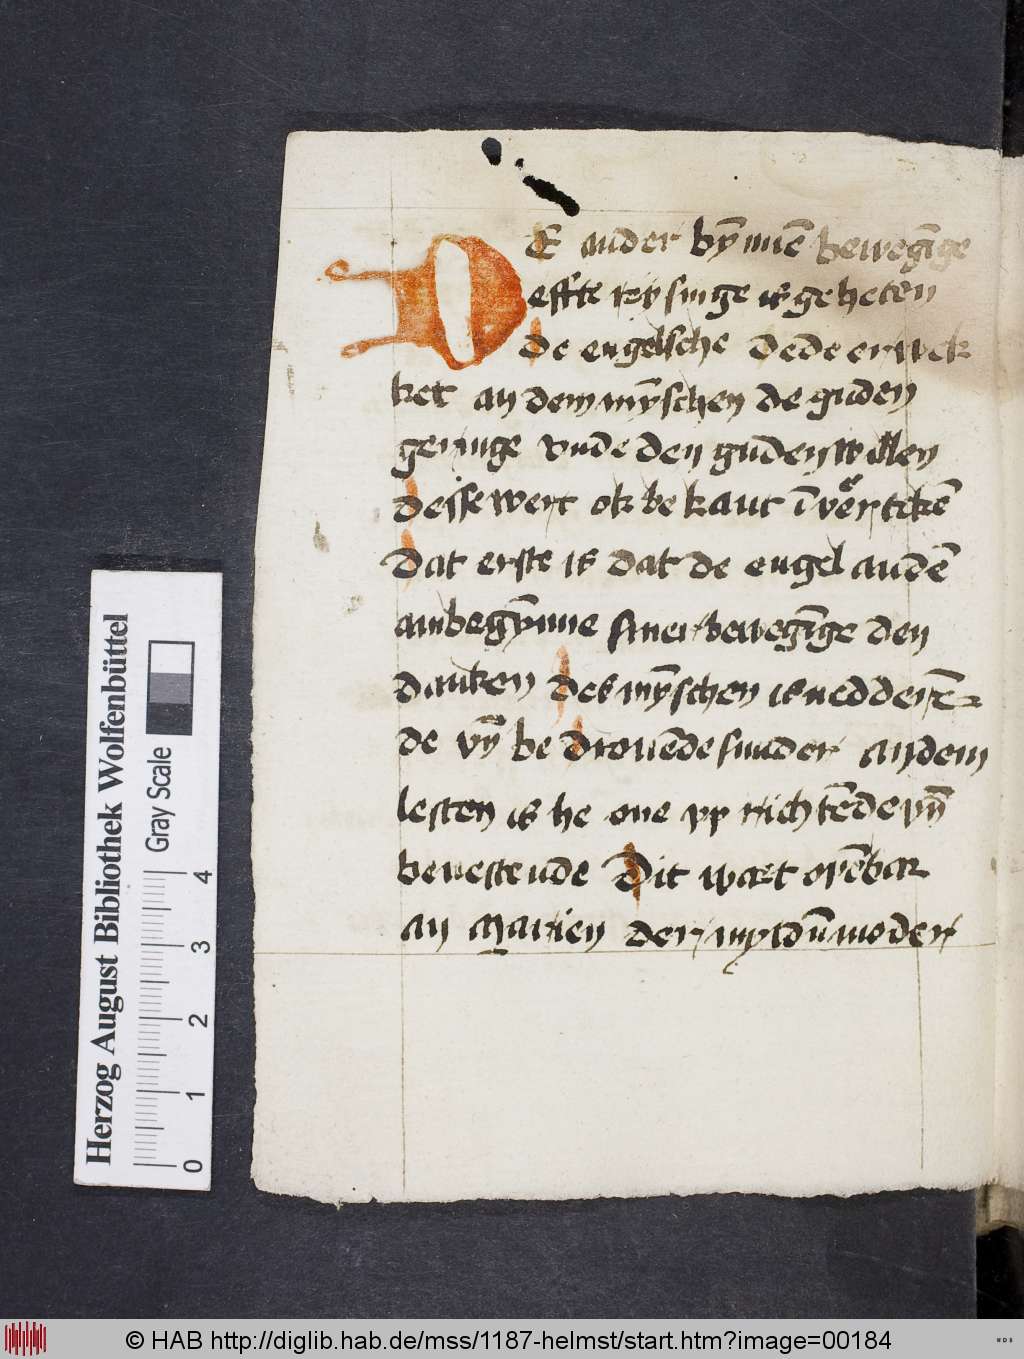 DE ander bȳnnē bewegīge
effte rysinge is geheten
de engelsche dede erwek
ket an dem mȳschen de guden
geringe vnde den guden willen
desse wert ok bekant ī vēr teken
Dat erste is dat de engel an dē
anbegȳnne siner bewegīge den
danken des mȳschen is nedderē
de vn̄ bedrouēde sunder an dem
lesten is he one vp richtēde vn̄
beuestende Dit wart opēbar
an Marien der myldē moder
Herzog August Bibliothek Wolfenbüttel
Gray Scale
0 1 2 3 4
© HAB http://diglib.hab.de/mss/1187-helmst/start.htm?image=00184